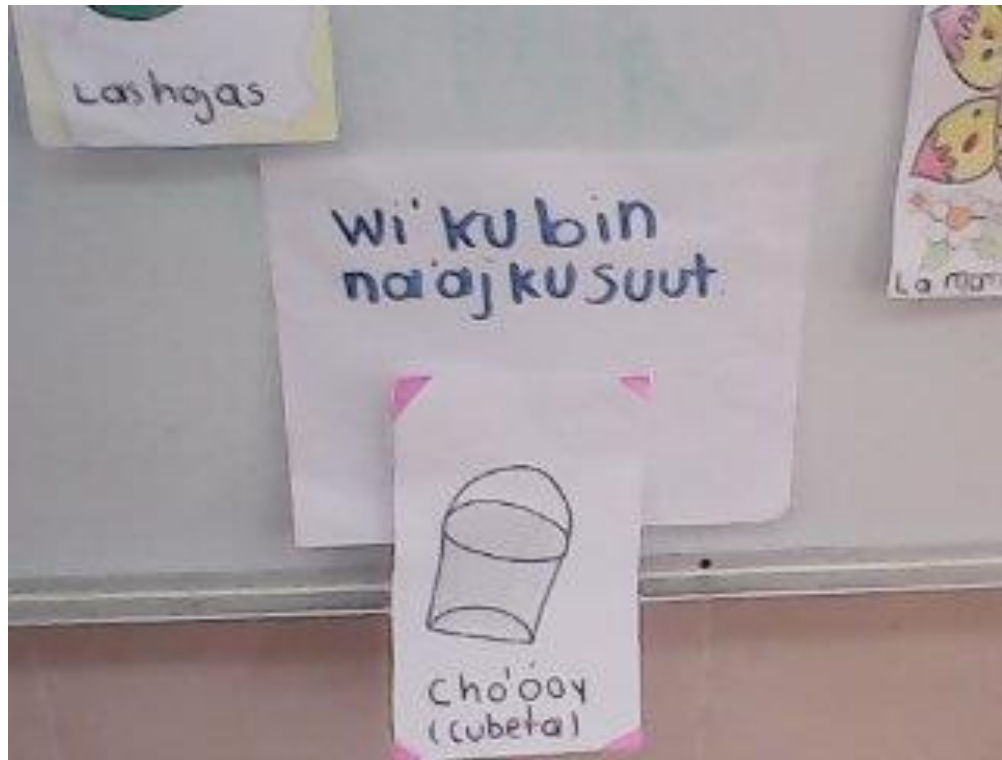 Las hojas
wi' ku bin
na'aj ku suut.
La
Cho'óoy
(cubeta)